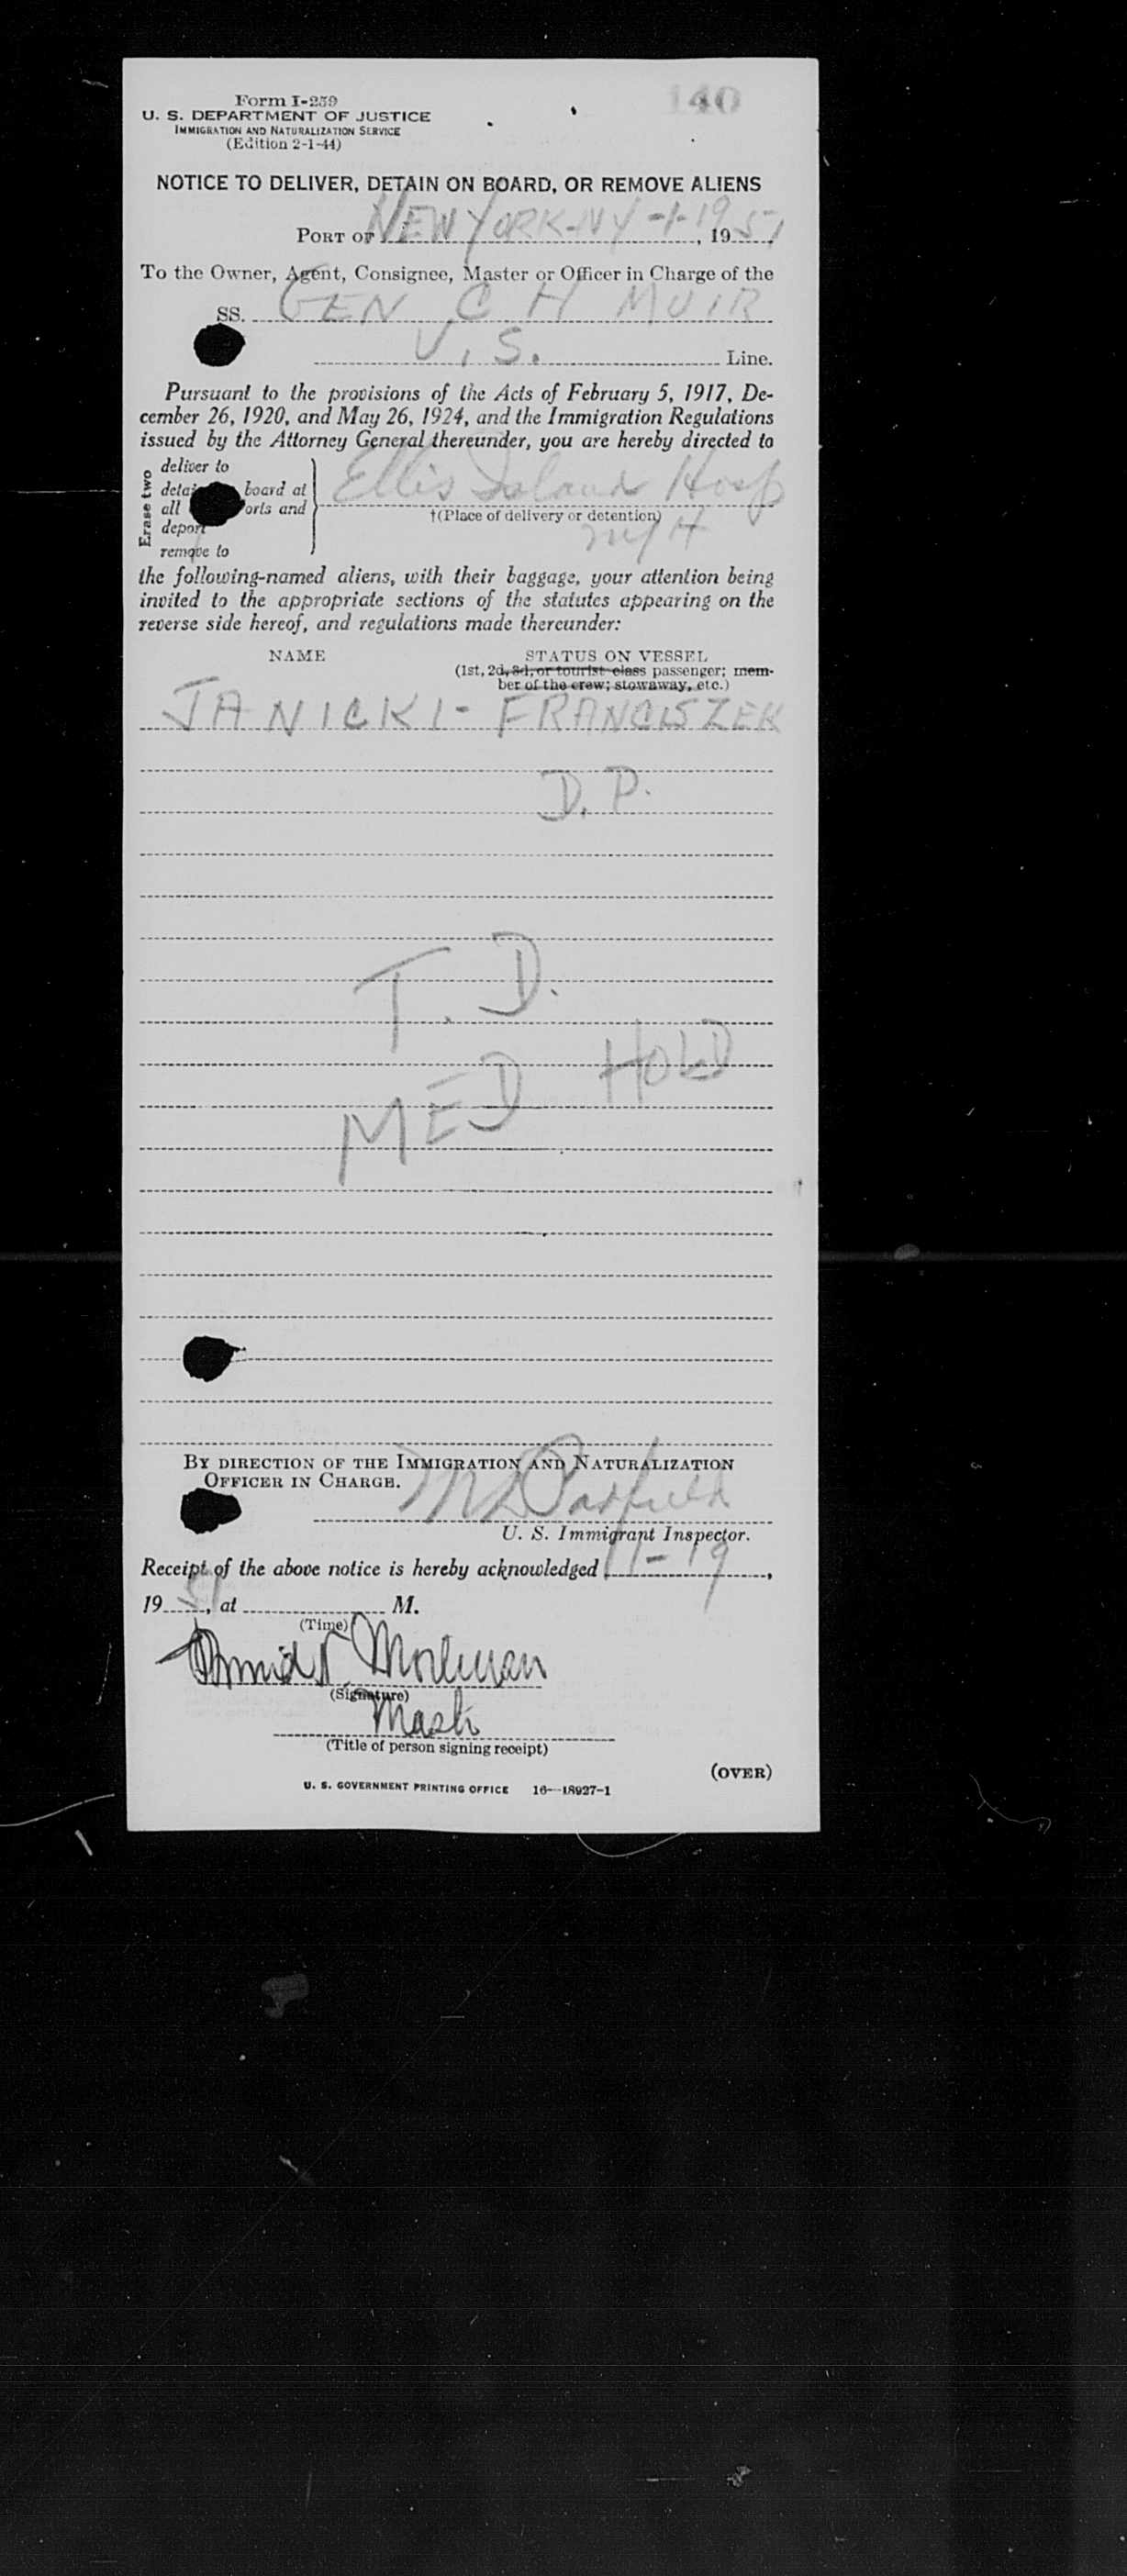 140
Form I-259
U. S. DEPARTMENT OF JUSTICE
IMMIGRATION AND NATURALIZATION SERVICE
(Edition 2-1-44)
NOTICE TO DELIVER, DETAIN ON BOARD, OR REMOVE ALIENS
PORT OF NEW YORK-NY -1-19, 1951
To the Owner, Agent, Consignee, Master or Officer in Charge of the
SS. GEN C H MUIR
U.S. Line.
Pursuant to the provisions of the Acts of February 5, 1917, De-
cember 26, 1920, and May 26, 1924, and the Immigration Regulations
issued by the Attorney General thereunder, you are hereby directed to
Erase two
deliver to
board at
all
and
deport
remove to
Ellis Island Hosp
†(Place of delivery or detention)
M/H
the following-named aliens, with their baggage, your attention being
invited to the appropriate sections of the statutes appearing on the
reverse side hereof, and regulations made thereunder:
NAME STATUS ON VESSEL
(1st, 2d, 3d, or tourist class passenger; mem-
ber of the crew; stowaway, etc.)
JANICKI - FRANCISZEK
D.P.
T. D.
MED HOLD
BY DIRECTION OF THE IMMIGRATION AND NATURALIZATION
OFFICER IN CHARGE.
U. S. Immigrant Inspector.
Receipt of the above notice is hereby acknowledged 1-19,
1951, at M.
(Time)
(Signature)
(Title of person signing receipt)
(OVER)
U. S. GOVERNMENT PRINTING OFFICE 16—18927-1